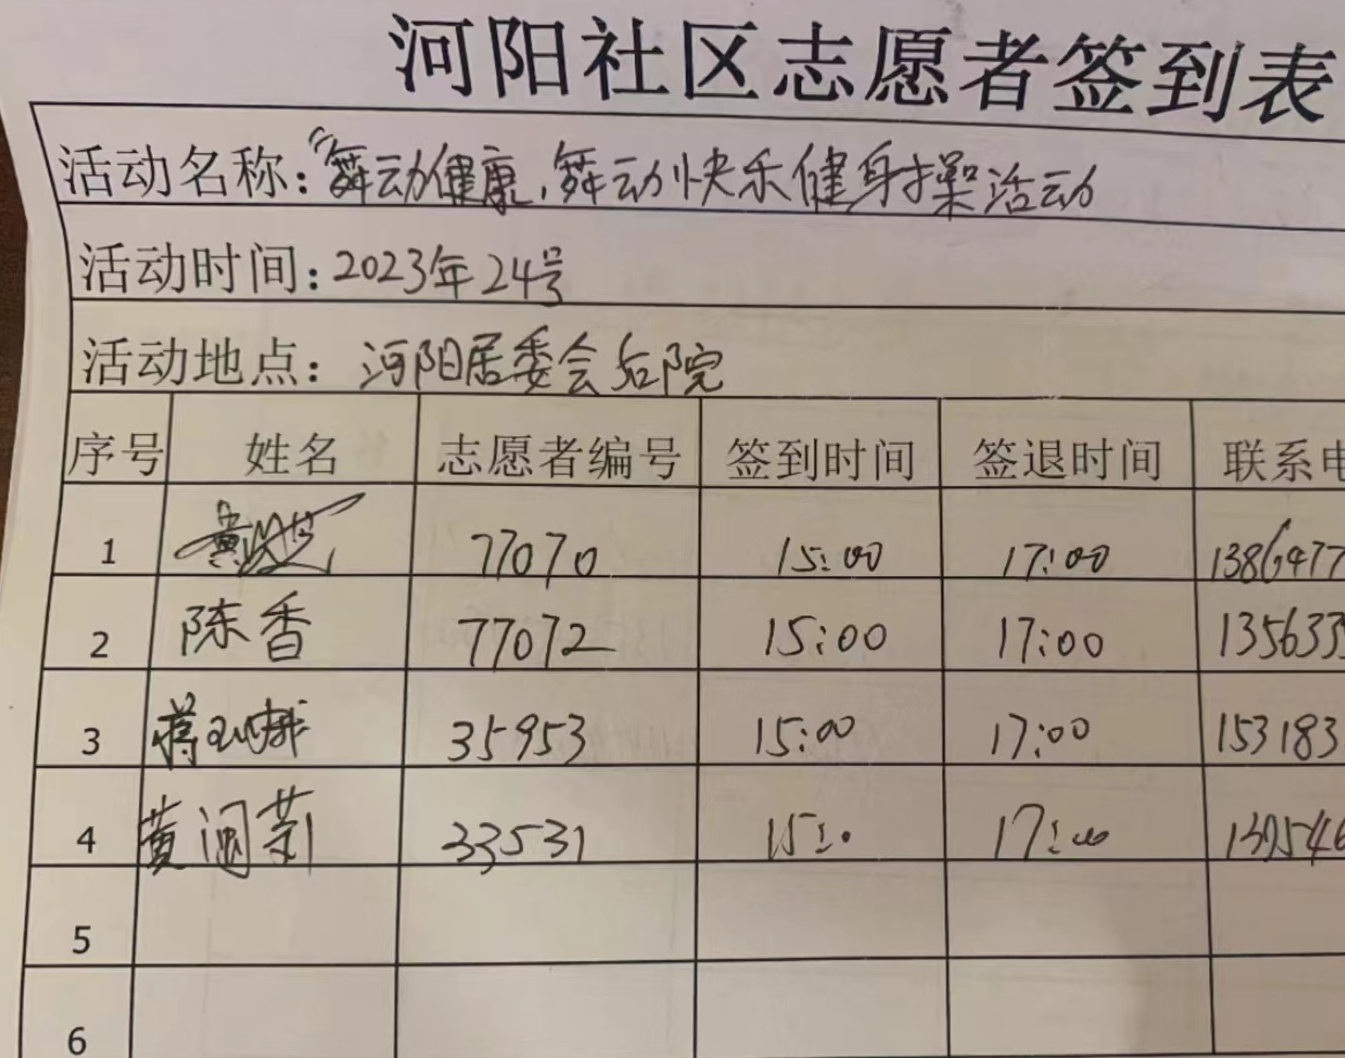 河阳社区志愿者签到表
活动名称：“舞动健康，舞动快乐健身操活动
活动时间：2023年24号
活动地点：河阳居委会后院
序号 姓名 志愿者编号 签到时间 签退时间 联系电
1 77070 15:00 17:00 1386477
2 陈香 77072 15:00 17:00 135633
3 蒋 35953 15:00 17:00 153183
4 黄 33531 17:00 139546
5
6